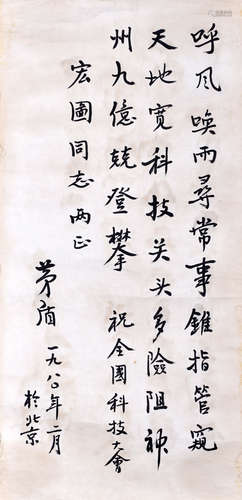 呼风唤雨寻常事锥指管窥
天地宽科技关头多险阻神
州九億競登攀 祝全國科技大會
宏圖同志两正
茅盾 一九八〇年二月
於北京